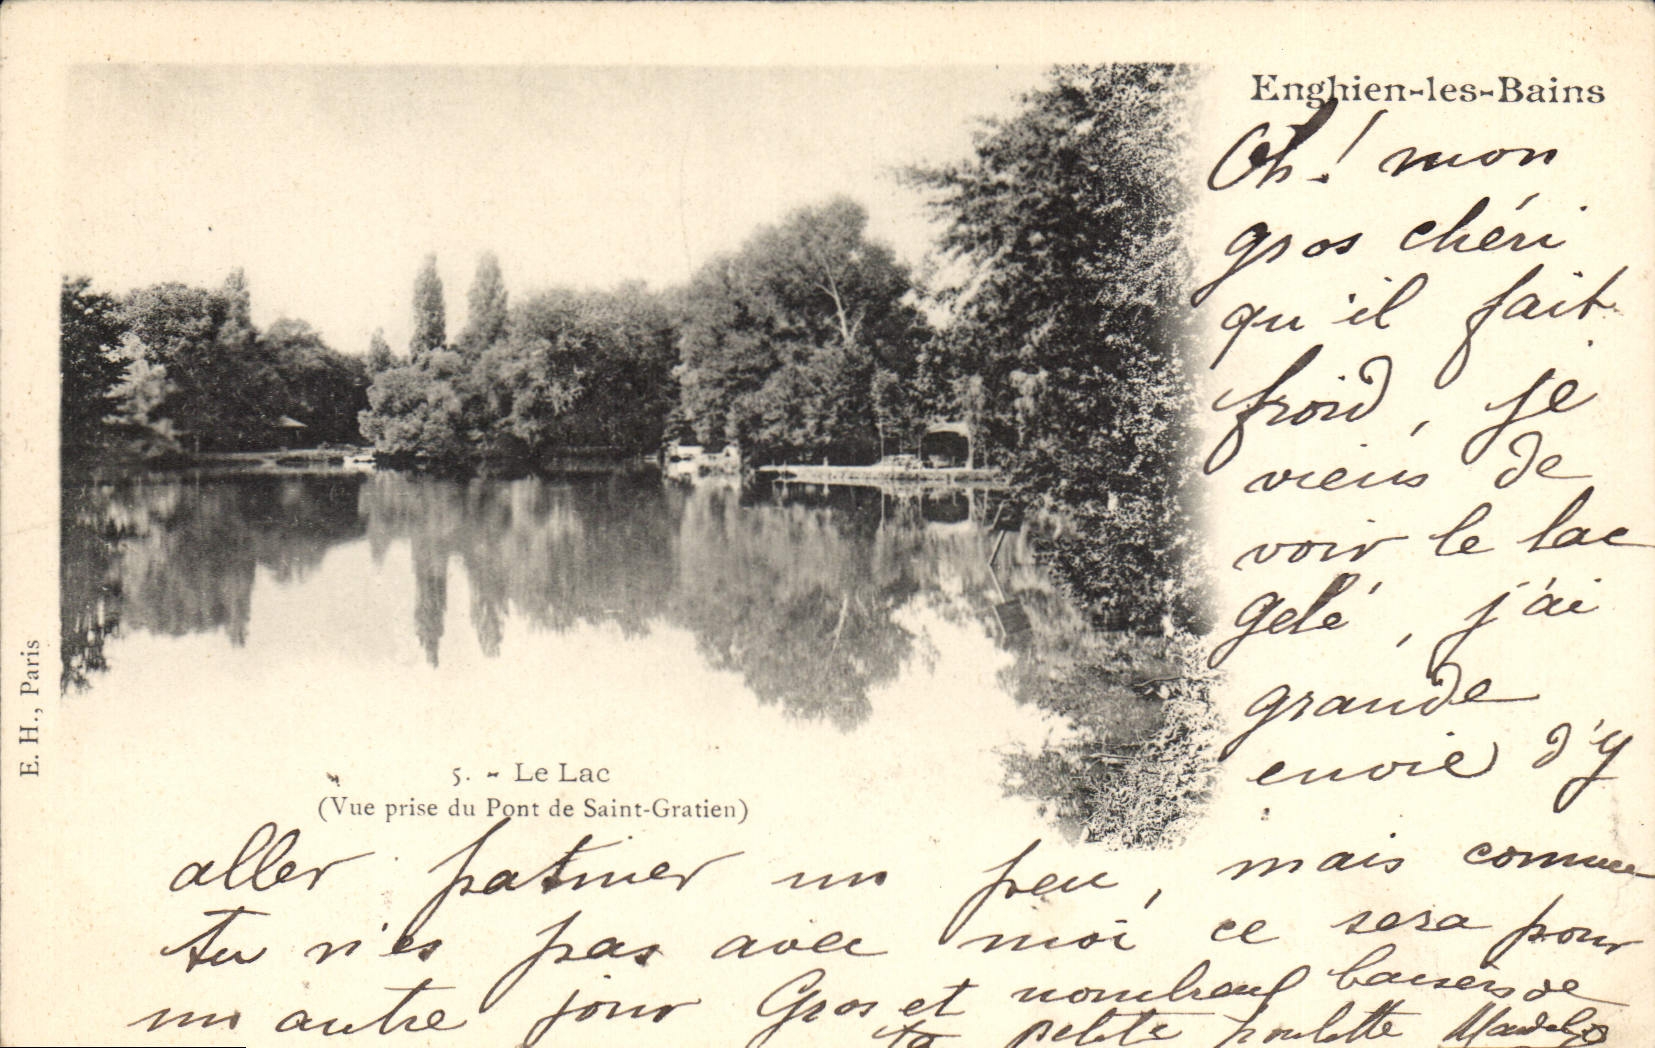 Enghien-les-Bains
Oh! mon
gros chéri
qu'il fait
froid, je
viens de
voir le lac
gelé, j'ai
grande
envie d'y
E. H., Paris
5. - Le Lac
(Vue prise du Pont de Saint-Gratien)
aller patiner un peu, mais comme
tu n'es pas avec moi ce sera pour
un autre jour Gros et nombreux baisers de
ta petite poulette